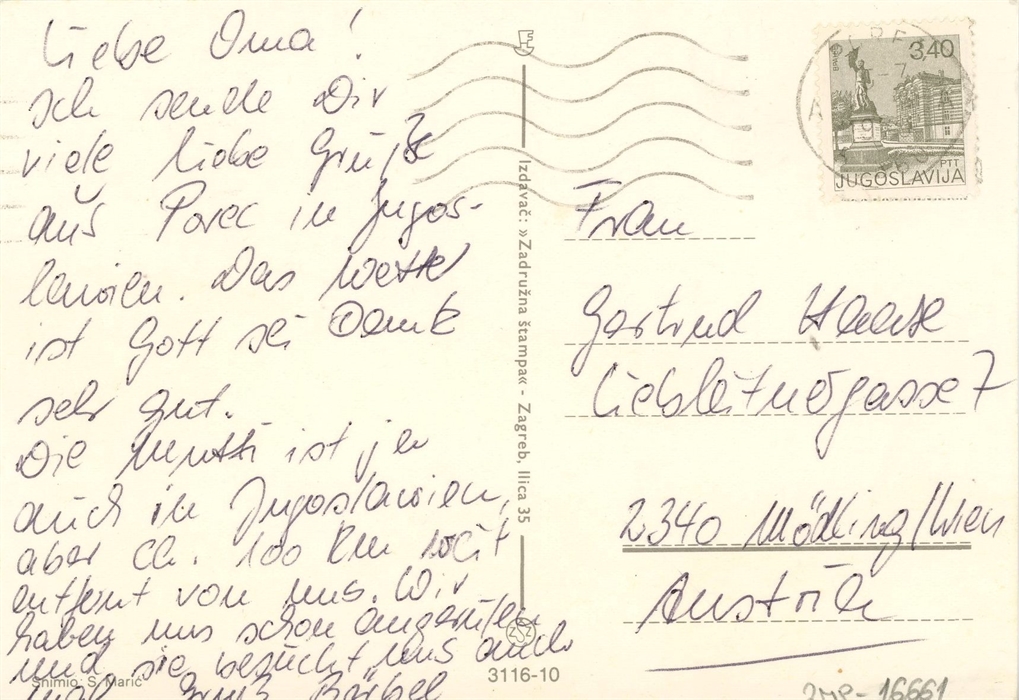 Liebe Oma!
Ich sende Dir
viele liebe Grüße
aus Porec in Jugos-
lawien. Das Wetter
ist Gott sei Dank
sehr gut.
Die Mutti ist ja
auch in Jugoslawien,
aber ca. 100 km weit
entfernt von uns. Wir
haben uns schon angerufen
und sie besucht uns auch
mal. Gruß Bärbel
Snimio: S. Marić
Izdavač: »Zadružna štampa« - Zagreb, Ilica 35
3116-10
3,40
PTT
JUGOSLAVIJA
Frau
Gertrud
gasse 7
2340 Mödling/Wien
Austria
16661